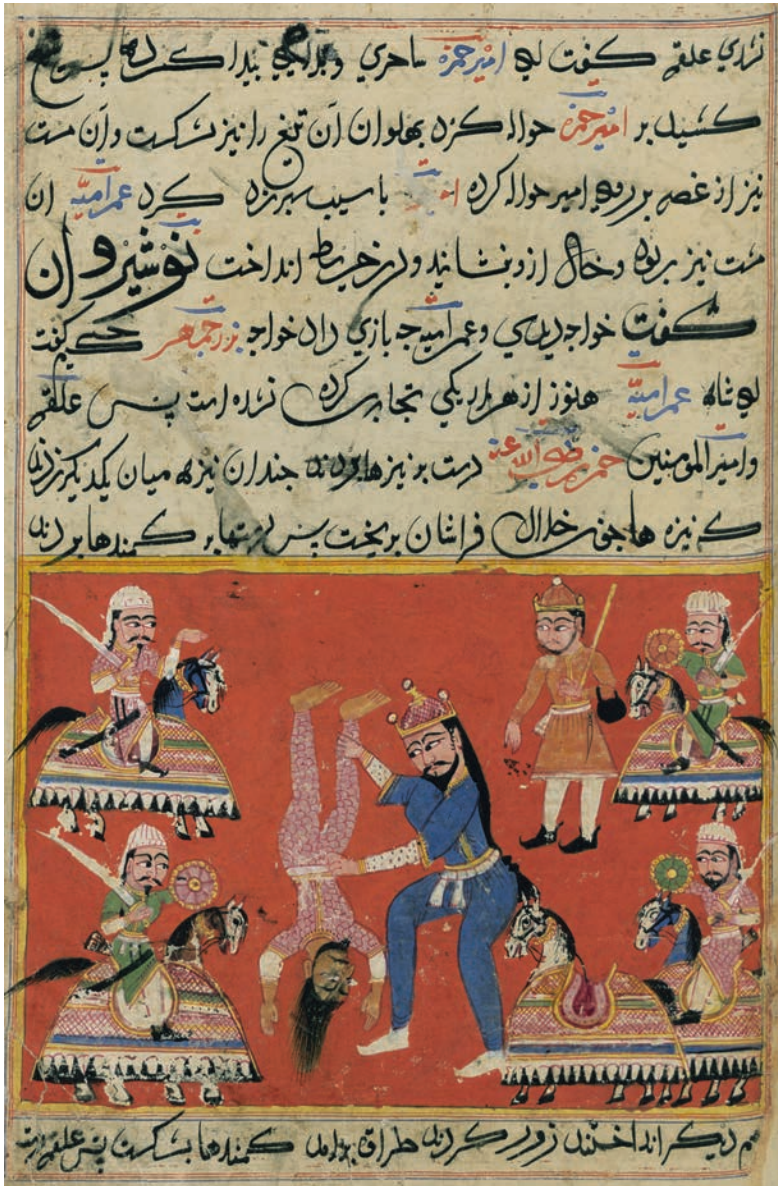 نزدی علقمه گفت ای امیر حمزه ساحری و بداچی پیدا کرده پس تیغ
کشید بر امیر حمزه حواله کرد بهلوان آن تیغ را نیز بشکست و آن مست
نیز از غصه بر روی امیر حواله کرده با سیب سپر زده کرد عمر امیه ان
مست نیز بربود و خاک ازو بنشاند و در خریطه انداخت نوشیروان
گفت خواجه دیدی و عمر امیه جه بازی داد خواجه بزرجمهر حکیم گفت
ای شاه عمر امیه هنوز از هزار یکی تجارت کرده نزده است پس علقمه
و امیر المومنین حمزه رضی الله عنه دست بر نیزها بردند جندان نیزه میان یکدیکر زدند
که نیزه ها جون خلال فراشان بریخت پس دستها بر کمندها بردند
هم دیکر انداختند زور کردند طراق برامد کمندها بشکست پس علقمه دست